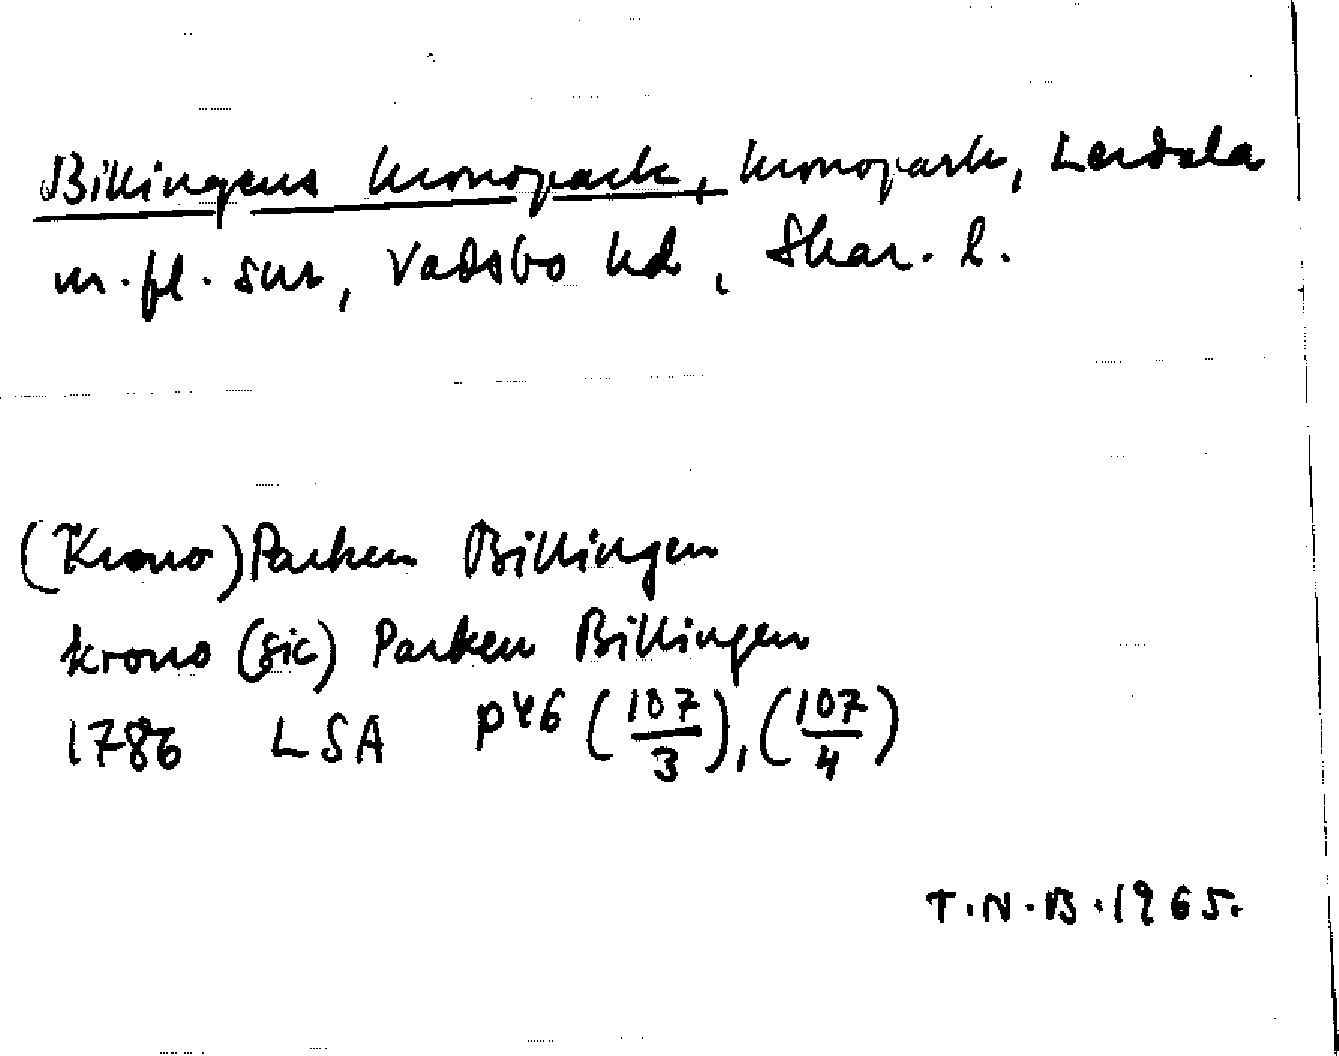 Billingens kronopark, kronopark, Lerdala
m.fl. snr, Vadsbo hd, Skar. l.
(Krono)Parken Billingen
krono (sic) Parken Billingen
1786 LSA P46 (107/3), (107/4)
T.N.B. 1965.